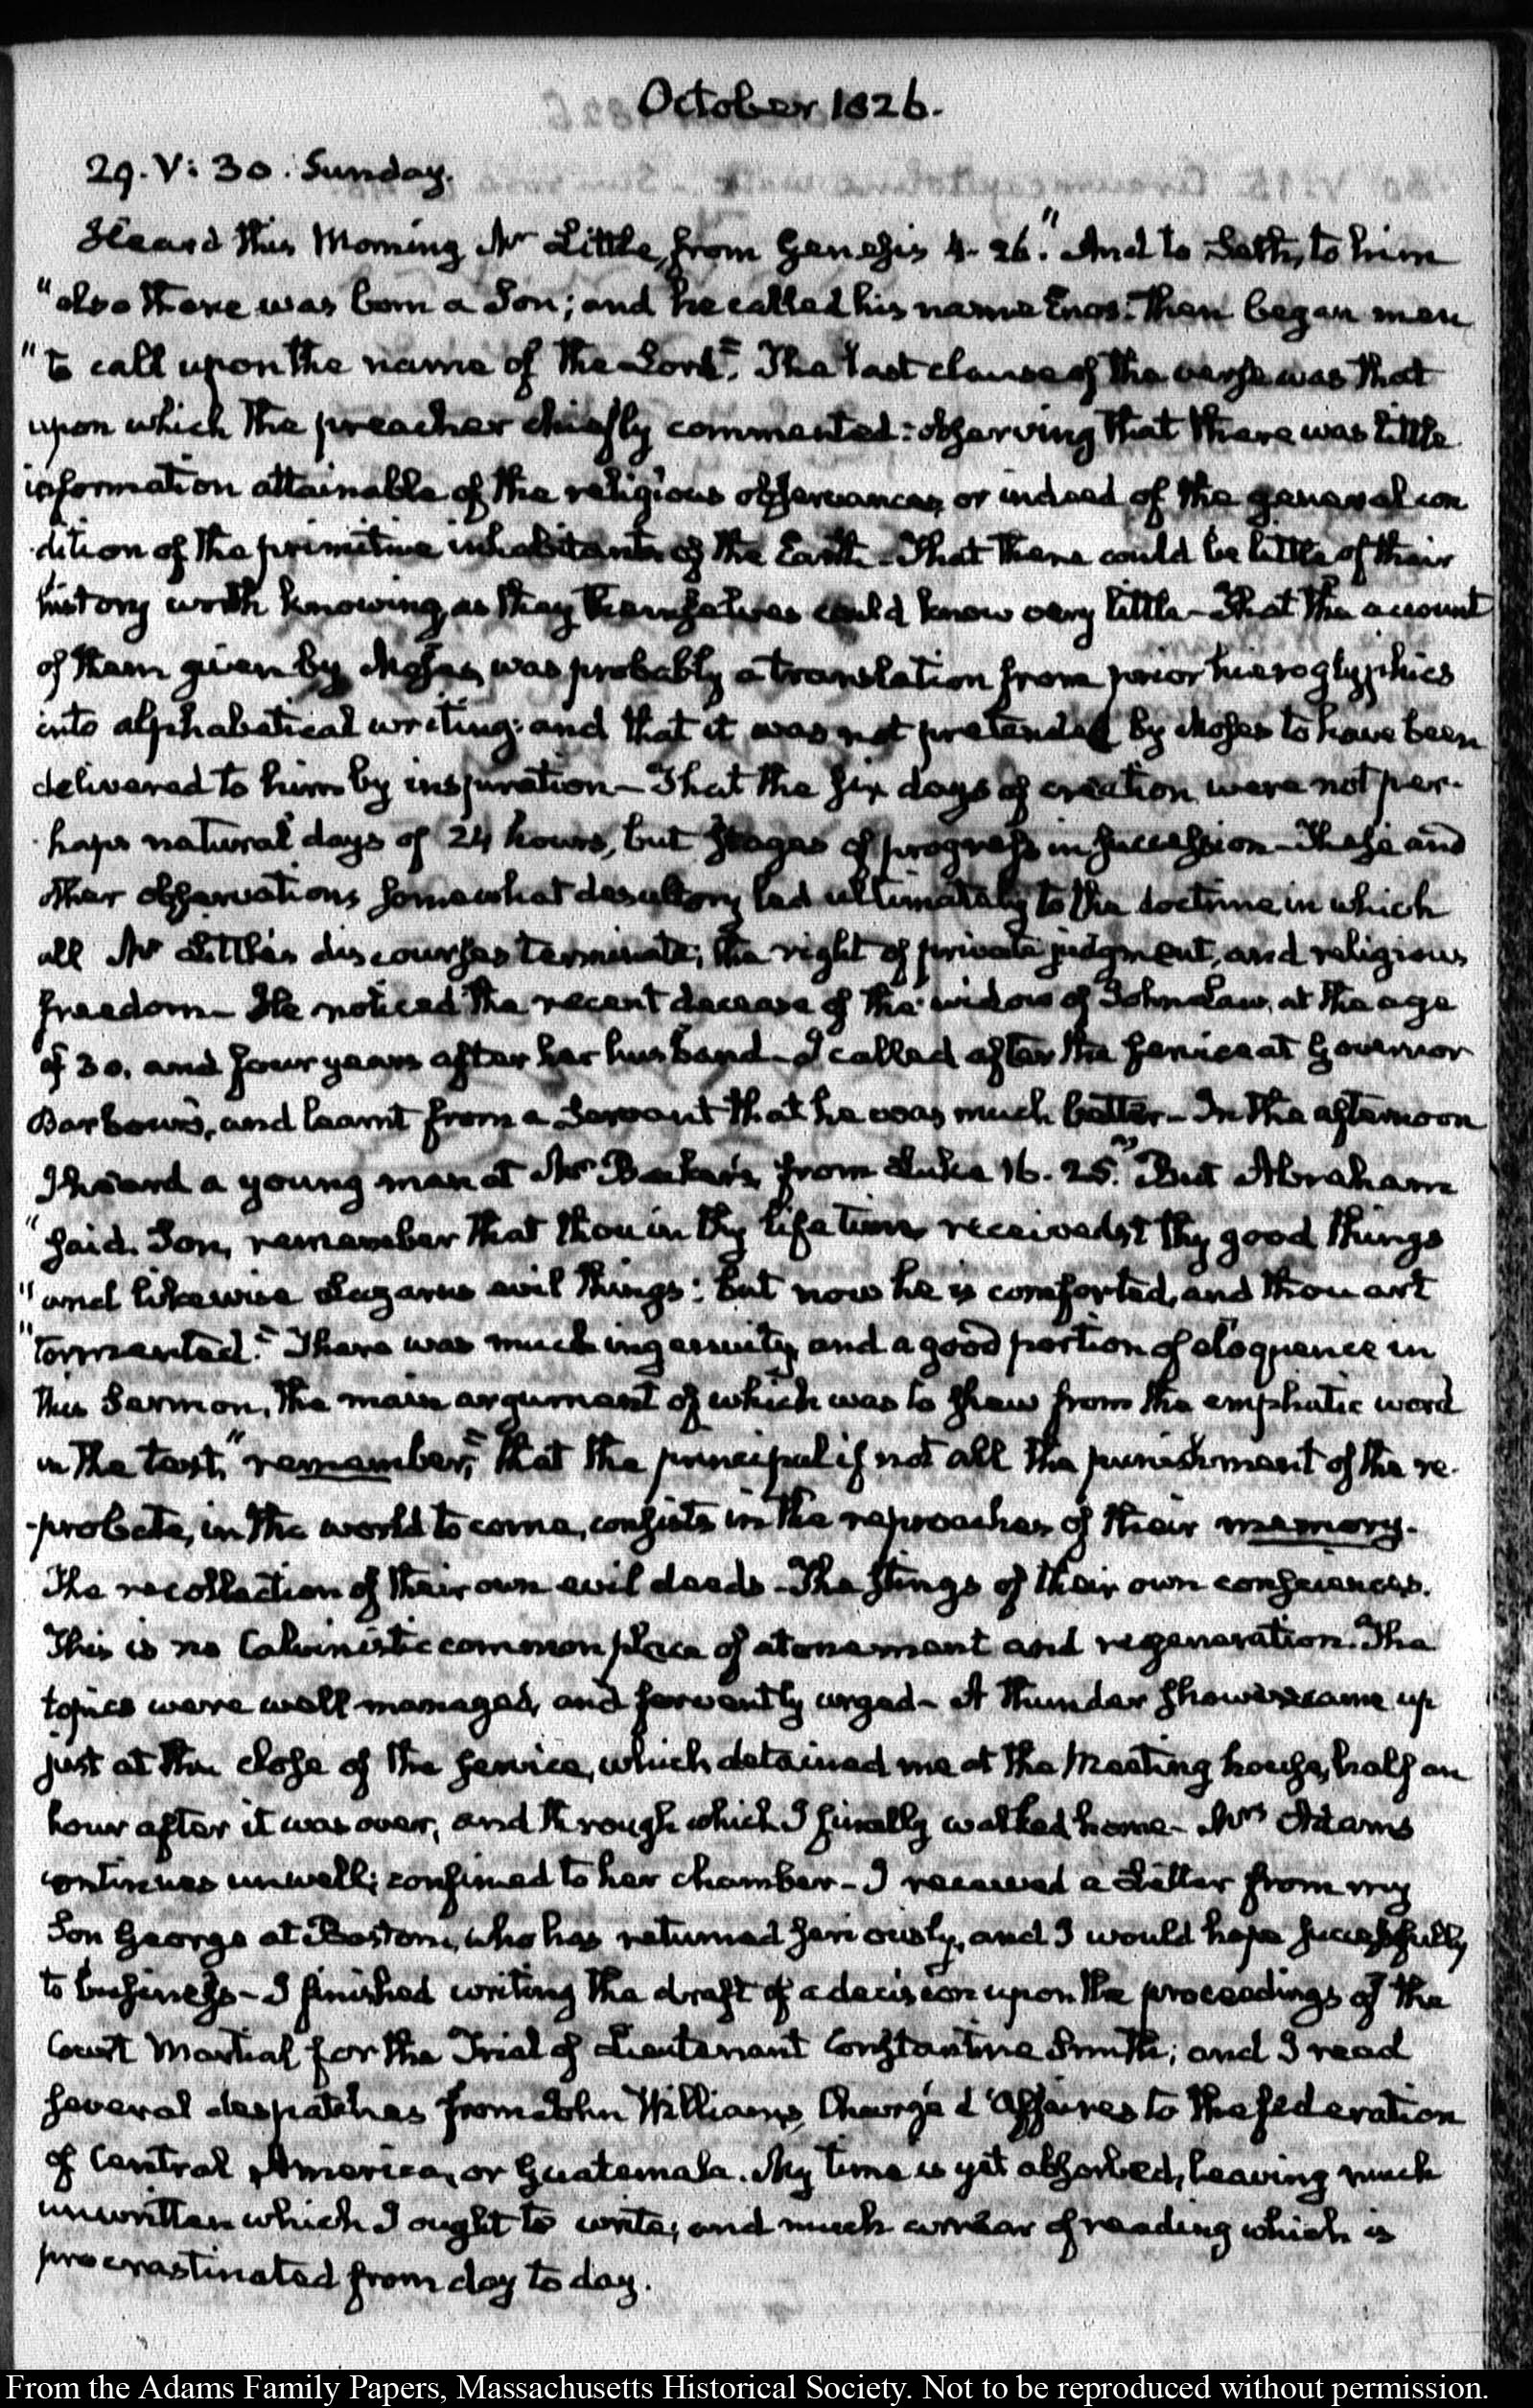 October 1826.
29. V: 30. Sunday.
Heard this Morning Mr Little, from Genesis 4. 26. "And to Seth, to him
"also there was born a Son; and he called his name Enos: then began men
"to call upon the name of the Lord." The last clause of the verse was that
upon which the preacher chiefly commented: observing that there was little
information attainable of the religious observances, or indeed of the general con
dition of the primitive inhabitants of the Earth- That there could be little of their
history worth knowing, as they themselves could know very little- That the account
of them given by Moses, was probably a translation from prior hieroglyphics
into alphabetical writing: and that it was not pretended by Moses to have been
delivered to him by inspiration- That the six days of creation were not per-
haps natural days of 24 hours, but stages of progress in succession- These and
other observations somewhat desultory led ultimately to the doctrine in which
all Mr Little's discourses terminate; the right of private judgment, and religious
freedom- He noticed the recent decease of the widow of John Law, at the age
of 30. and four years after her husband- I called after the service at Governor
Barbour's, and learnt from a Servant that he was much better- In the afternoon
I heard a young man at Mr Baker's, from Luke 16. 25. "But Abraham
"said. Son, remember that thou in thy life time receivedst thy good things
"and likewise Lazarus evil things: but now he is comforted, and thou art
"tormented." There was much ingenuity, and a good portion of eloquence in
this Sermon, the main argument of which was to shew from the emphatic word
in the text, "remember," that the principal if not all the punishment of the re-
-probate, in the world to come, consists in the reproaches of their memory.
The recollection of their own evil deeds- The stings of their own consciences.
This is no Calvinistic common place of atonement and regeneration. The
topics were well managed, and fervently urged- A thunder shower came up
just at the close of the service, which detained me at the Meeting house, half an
hour after it was over, and through which I finally walked home- Mrs Adams
continues unwell; confined to her chamber- I received a Letter from my
Son George at Boston, who has returned seriously, and I would hope successfully
to business- I finished writing the draft of a decision upon the proceedings of the
Court Martial for the Trial of Lieutenant Constantine Smith; and I read
several despatches from John Williams, Chargé d'Affaires to the federation
of Central America, or Guatemala. My time is yet absorbed, leaving much
unwritten which I ought to write; and much arrear of reading which is
procrastinated from day to day.
From the Adams Family Papers, Massachusetts Historical Society. Not to be reproduced without permission.